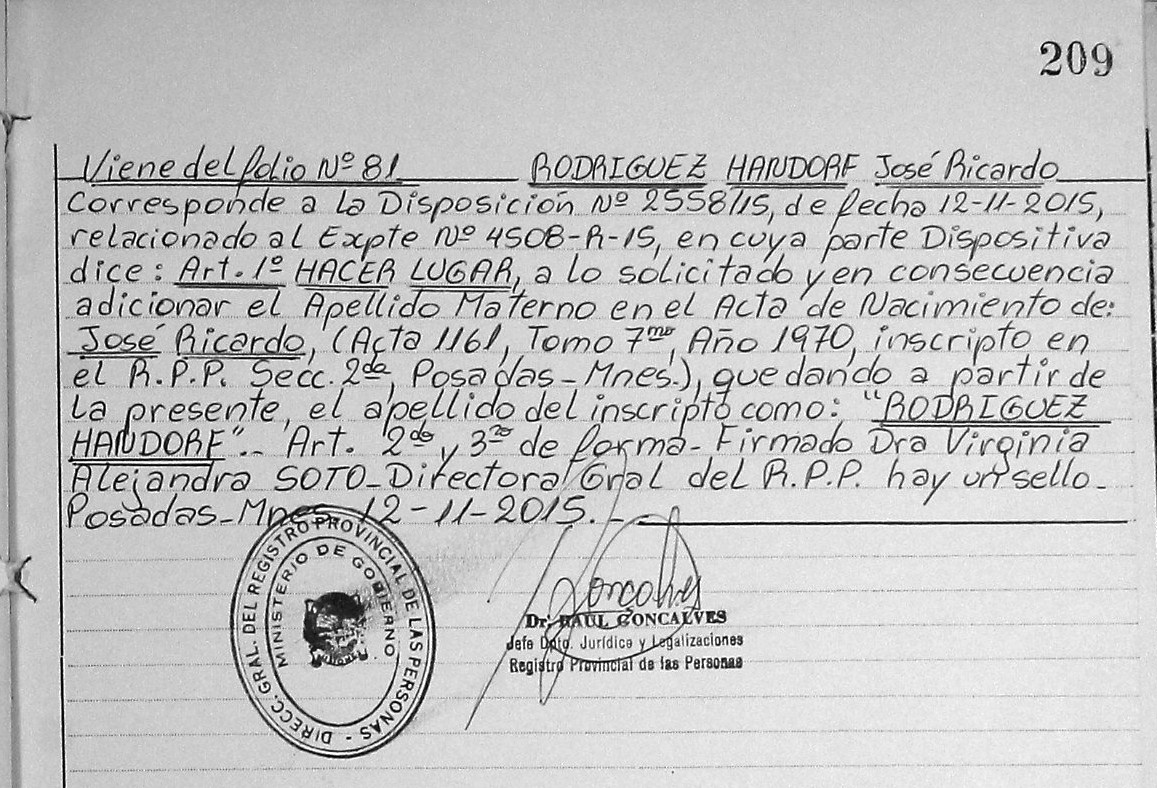 209
Viene del folio Nº 81 RODRIGUEZ HANDORF José Ricardo
Corresponde a la Disposición Nº 2558/15, de fecha 12-11-2015,
relacionado al Expte Nº 4508-R-15, en cuya parte Dispositiva
dice: Art. 1º HACER LUGAR, a lo solicitado y en consecuencia
adicionar el Apellido Materno en el Acta de Nacimiento de:
José Ricardo, (Acta 1161, Tomo 7mo, Año 1970, inscripto en
el R.P.P. Secc. 2da, Posadas-Mnes.), quedando a partir de
la presente, el apellido del inscripto como: "RODRIGUEZ
HANDORF".- Art. 2do y 3ro de forma- Firmado Dra Virginia
Alejandra SOTO-Directora Gral del R.P.P. hay un sello-
Posadas-Mnes 12-11-2015.-
DIRECC. GRAL. DEL REGISTRO PROVINCIAL DE LAS PERSONAS -
MINISTERIO DE GOBIERNO
Goncalves
Dr. RAUL GONCALVES
Jefe Dpto. Jurídico y Legalizaciones
Registro Provincial de las Personas